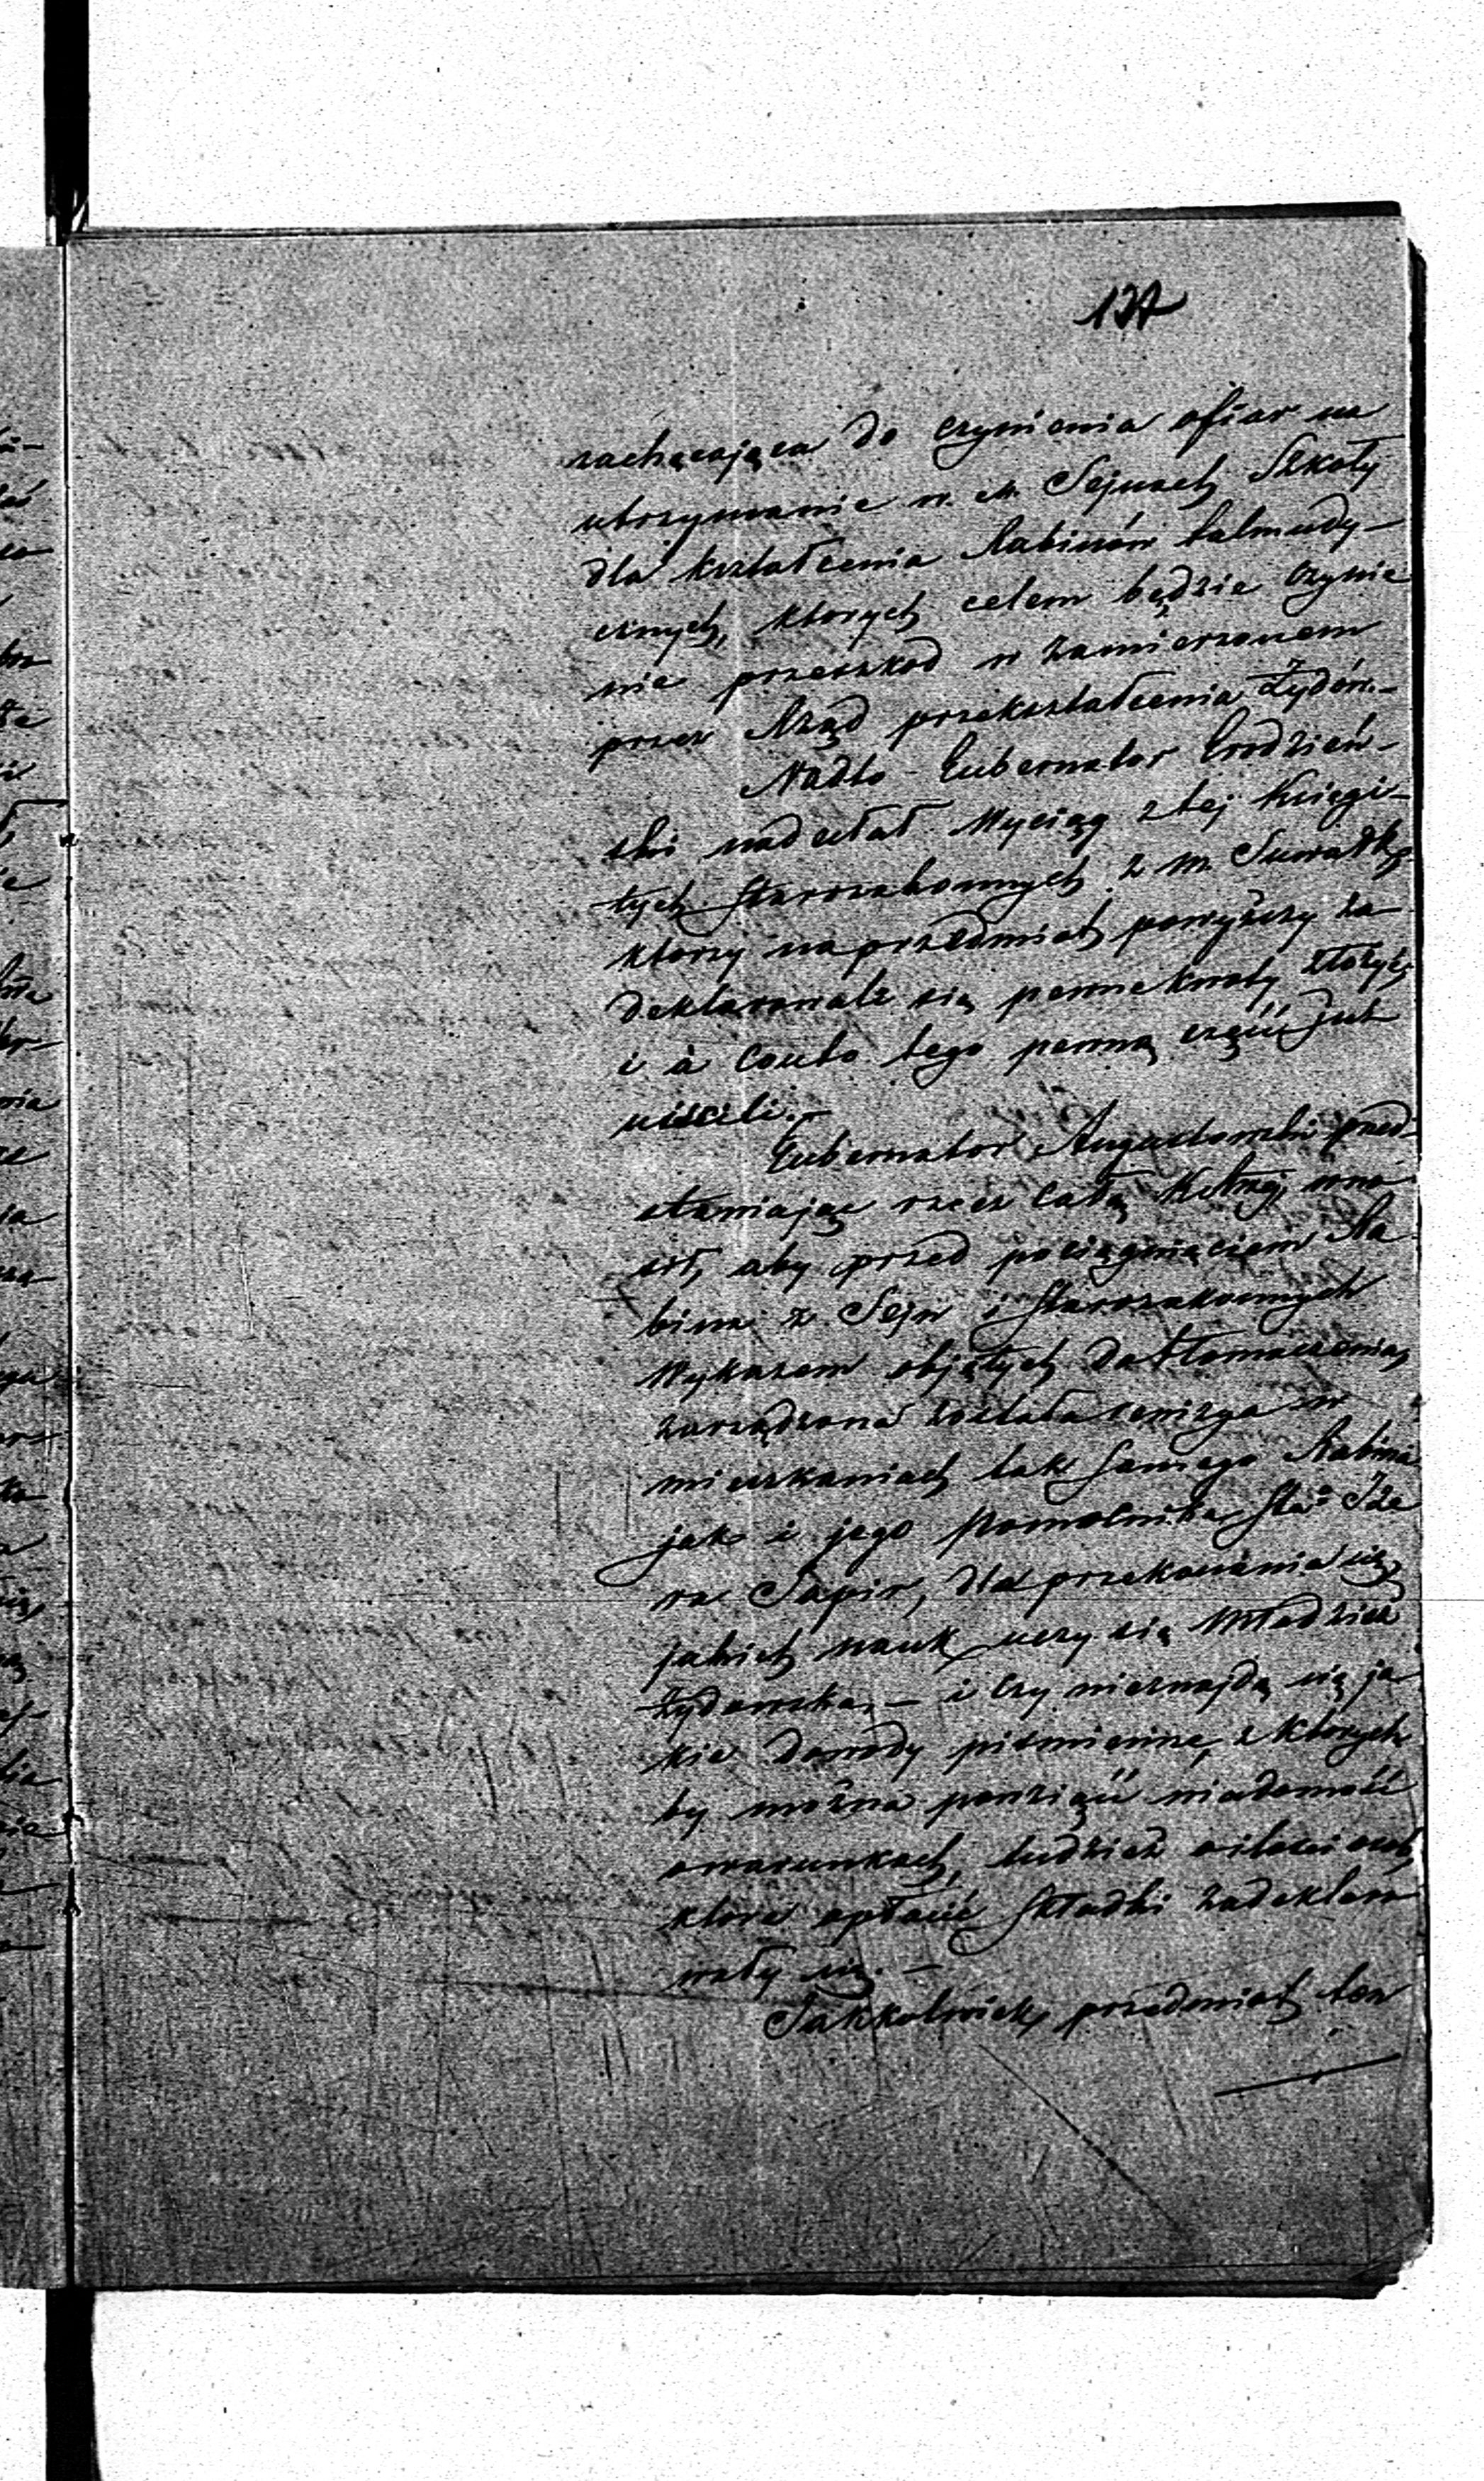 137
zachęcająca do czynienia ofiar na
utrzymanie w. m. Sejnach Szkoły
dla kształcenia Rabinów talmudy-
cznych, ktorych celem będzie czynie
nie przeszkod w zamierzonem
przez Rząd przekształcenia Żydów.-
Nadto Gubernator Grodzień-
ski nadesłał Wyciąg z tej Księgi-
tych Starozakonnych z m. Suwałk,
ktorzy na przedmiot powyższy za-
deklarowali się pewne kwoty złożyć,
i à Conto tego pewną część już
uiścili.-
Gubernator Augustowski przed-
stawiając rzecz całą wno-
sił, aby przed pociągnięciem Ra-
bina z Sejn i Starozakonnych
Wykazem objętych do tłomaczenia,
zarządzona została rewizya w
mieszkaniach tak samego Rabina
jak i jego Pomocnika Sta:
ra Sapir, dla przekonania się,
jakich nauk uczy się Młodzież
Żydowska,- i czy nieznajdą się ja
kie dowody piśmienne, z ktorych
by można powziąść wiadomość
o warunkach, tudzież o ilości osób,
ktore opłacić Składki zadeklaro
wały się.-
Jakkolwiek przedmiot ten